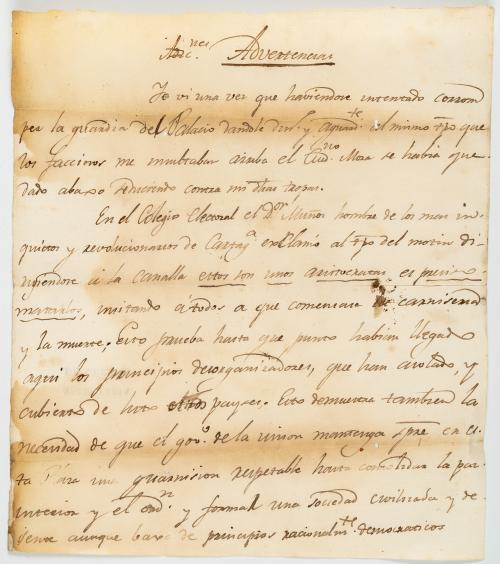 Advertencias
Se vi una vez que haviendose intentado corrom
per la guardia del Palacio dandole din.º y aguard.te al mismo tpo que
los facciosos me insultaban arriba el Ciud.no Mora se habia que
dado abaxo seduciendo contra mi d̃has tropas.
En el Colegio Electoral el D.or Muños hombre de los mas in
quietos y revolucionarios de Cartag.a exclamó al tpo del motin di
rigiendose á la canalla estos son unos aristocratas, es preciso
matarlos, invitando á todos a que comensase la carniseria
y la muerte; Esto prueba hasta que punto habian llegado
aqui los principios desorganizadores, que han asolado, y
cubierto de luto otros payses. Esto demuestra tambien la
necesidad de que el gov.º de la union mantenga spre en es
ta Plaza una guarnision respetable hasta consolidar la paz
interior y el ord.n y formal una sociedad civilisada y de
sente aunque baxo de principios racionalm.te democraticos